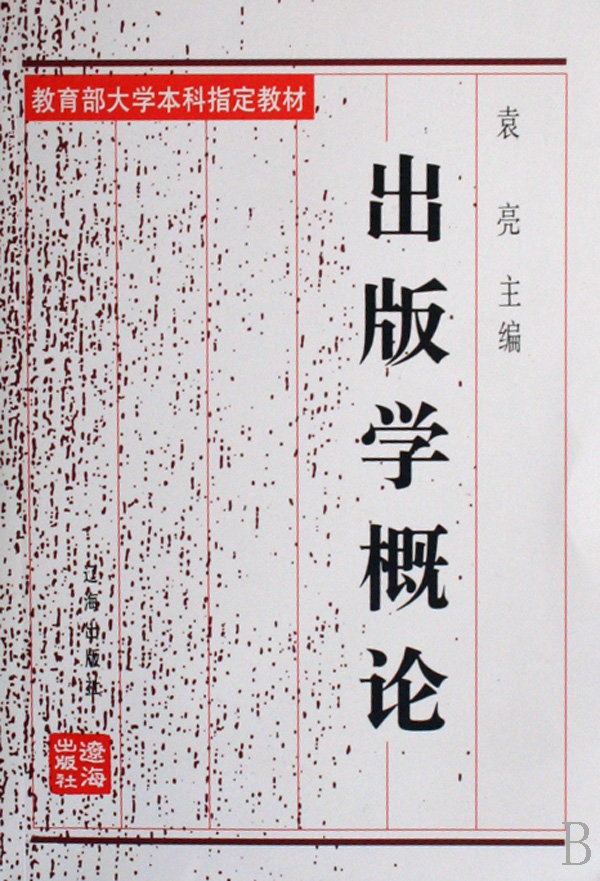 教育部大学本科指定教材
袁亮主编
出版学概论
辽海出版社
遼海
出版社
B